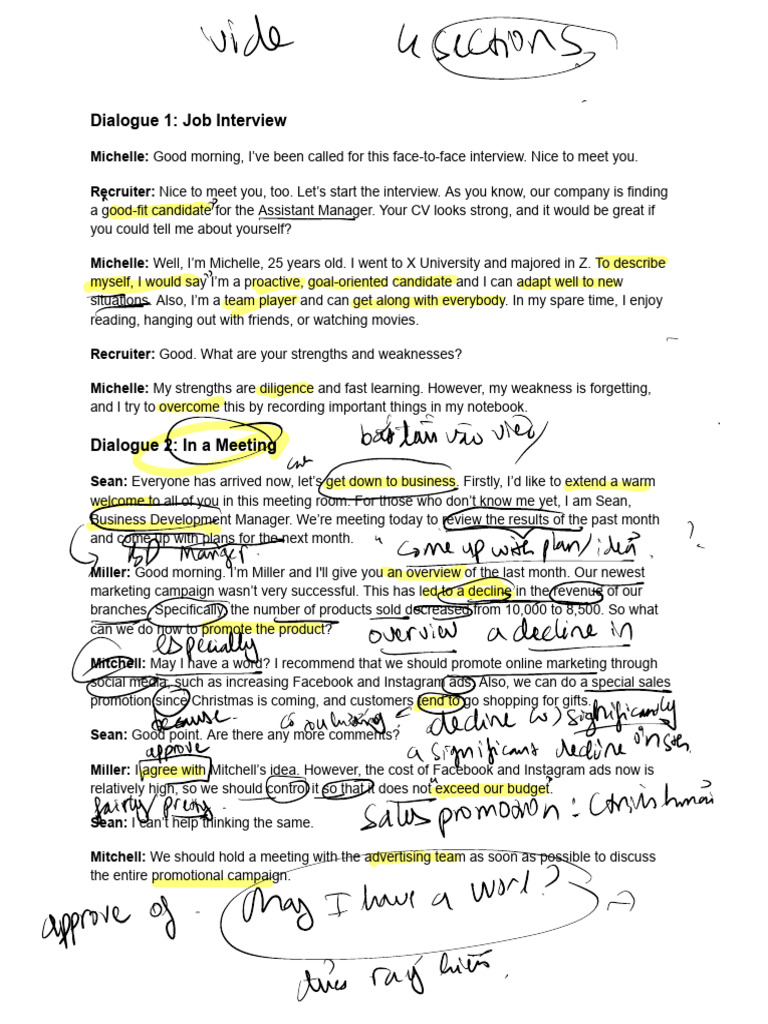 4 sections
Dialogue 1: Job Interview
Michelle: Good morning, I've been called for this face-to-face interview. Nice to meet you.
Recruiter: Nice to meet you, too. Let's start the interview. As you know, our company is finding
a good-fit candidate for the Assistant Manager. Your CV looks strong, and it would be great if
you could tell me about yourself?
Michelle: Well, I'm Michelle, 25 years old. I went to X University and majored in Z. To describe
myself, I would say I'm a proactive, goal-oriented candidate and I can adapt well to new
situations. Also, I'm a team player and can get along with everybody. In my spare time, I enjoy
reading, hanging out with friends, or watching movies.
Recruiter: Good. What are your strengths and weaknesses?
Michelle: My strengths are diligence and fast learning. However, my weakness is forgetting,
and I try to overcome this by recording important things in my notebook.
bắt tay vào việc
Dialogue 2: In a Meeting
Sean: Everyone has arrived now, let's get down to business. Firstly, I'd like to extend a warm
welcome to all of you in this meeting room. For those who don't know me yet, I am Sean,
Business Development Manager. We're meeting today to review the results of the past month
and come up with plans for the next month.
BD Manger
come up with plan/idea
Miller: Good morning. I'm Miller and I'll give you an overview of the last month. Our newest
marketing campaign wasn't very successful. This has led to a decline in the revenue of our
branches. Specifically, the number of products sold decreased from 10,000 to 8,500. So what
can we do now to promote the product?
especially
overview a decline in
Mitchell: May I have a word? I recommend that we should promote online marketing through
social media, such as increasing Facebook and Instagram ads. Also, we can do a special sales
promotion since Christmas is coming, and customers tend to go shopping for gifts.
because
decline (v) significantly
Sean: Good point. Are there any more comments?
approve
a significant decline in
Miller: I agree with Mitchell's idea. However, the cost of Facebook and Instagram ads now is
relatively high, so we should control it so that it does not exceed our budget.
fairly/pretty
sales promotion :
Sean: I can't help thinking the same.
Mitchell: We should hold a meeting with the advertising team as soon as possible to discuss
the entire promotional campaign.
approve of
May I have a word?